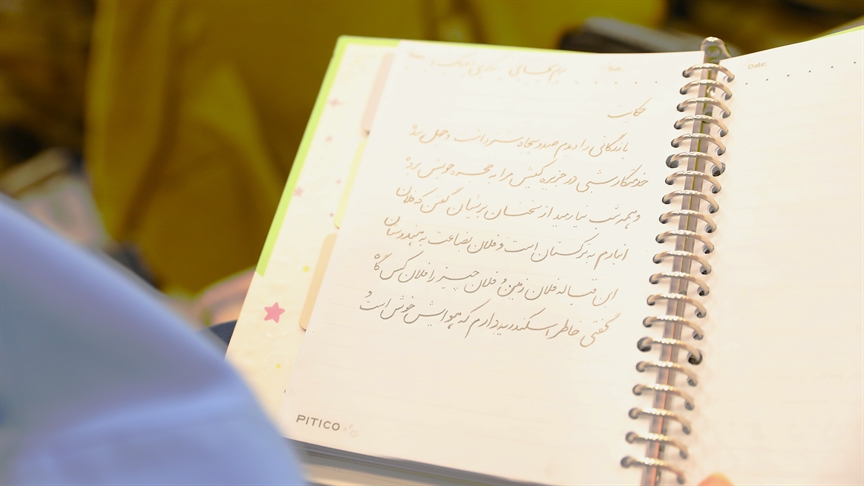 حکایت
بازرگانی را دیدم که صد و پنجاه شتر داشت و چهل بنده
خدمتکار شبی در جزیره کیش مرا به حجره خویش برد
و همه شب نیارمید از سخنان پریشان گفتن که فلان
انبارم به ترکستان است و فلان بضاعت به هندوستان
این قباله فلان زمین و فلان چیز را فلان کس گاه
گفتی خاطر اسکندریه دارم که هوایش خوش است و
PITICO